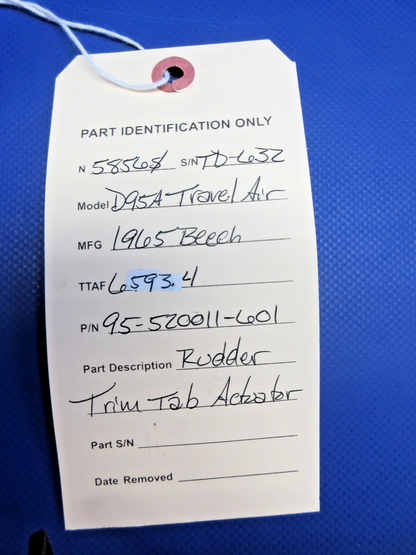 PART IDENTIFICATION ONLY
N 5856S S/N TD-632
Model D95A Travel Air
MFG 1965 Beech
TTAF 6593.4
P/N 95-520011-601
Part Description Rudder
Trim Tab Actuator
Part S/N
Date Removed